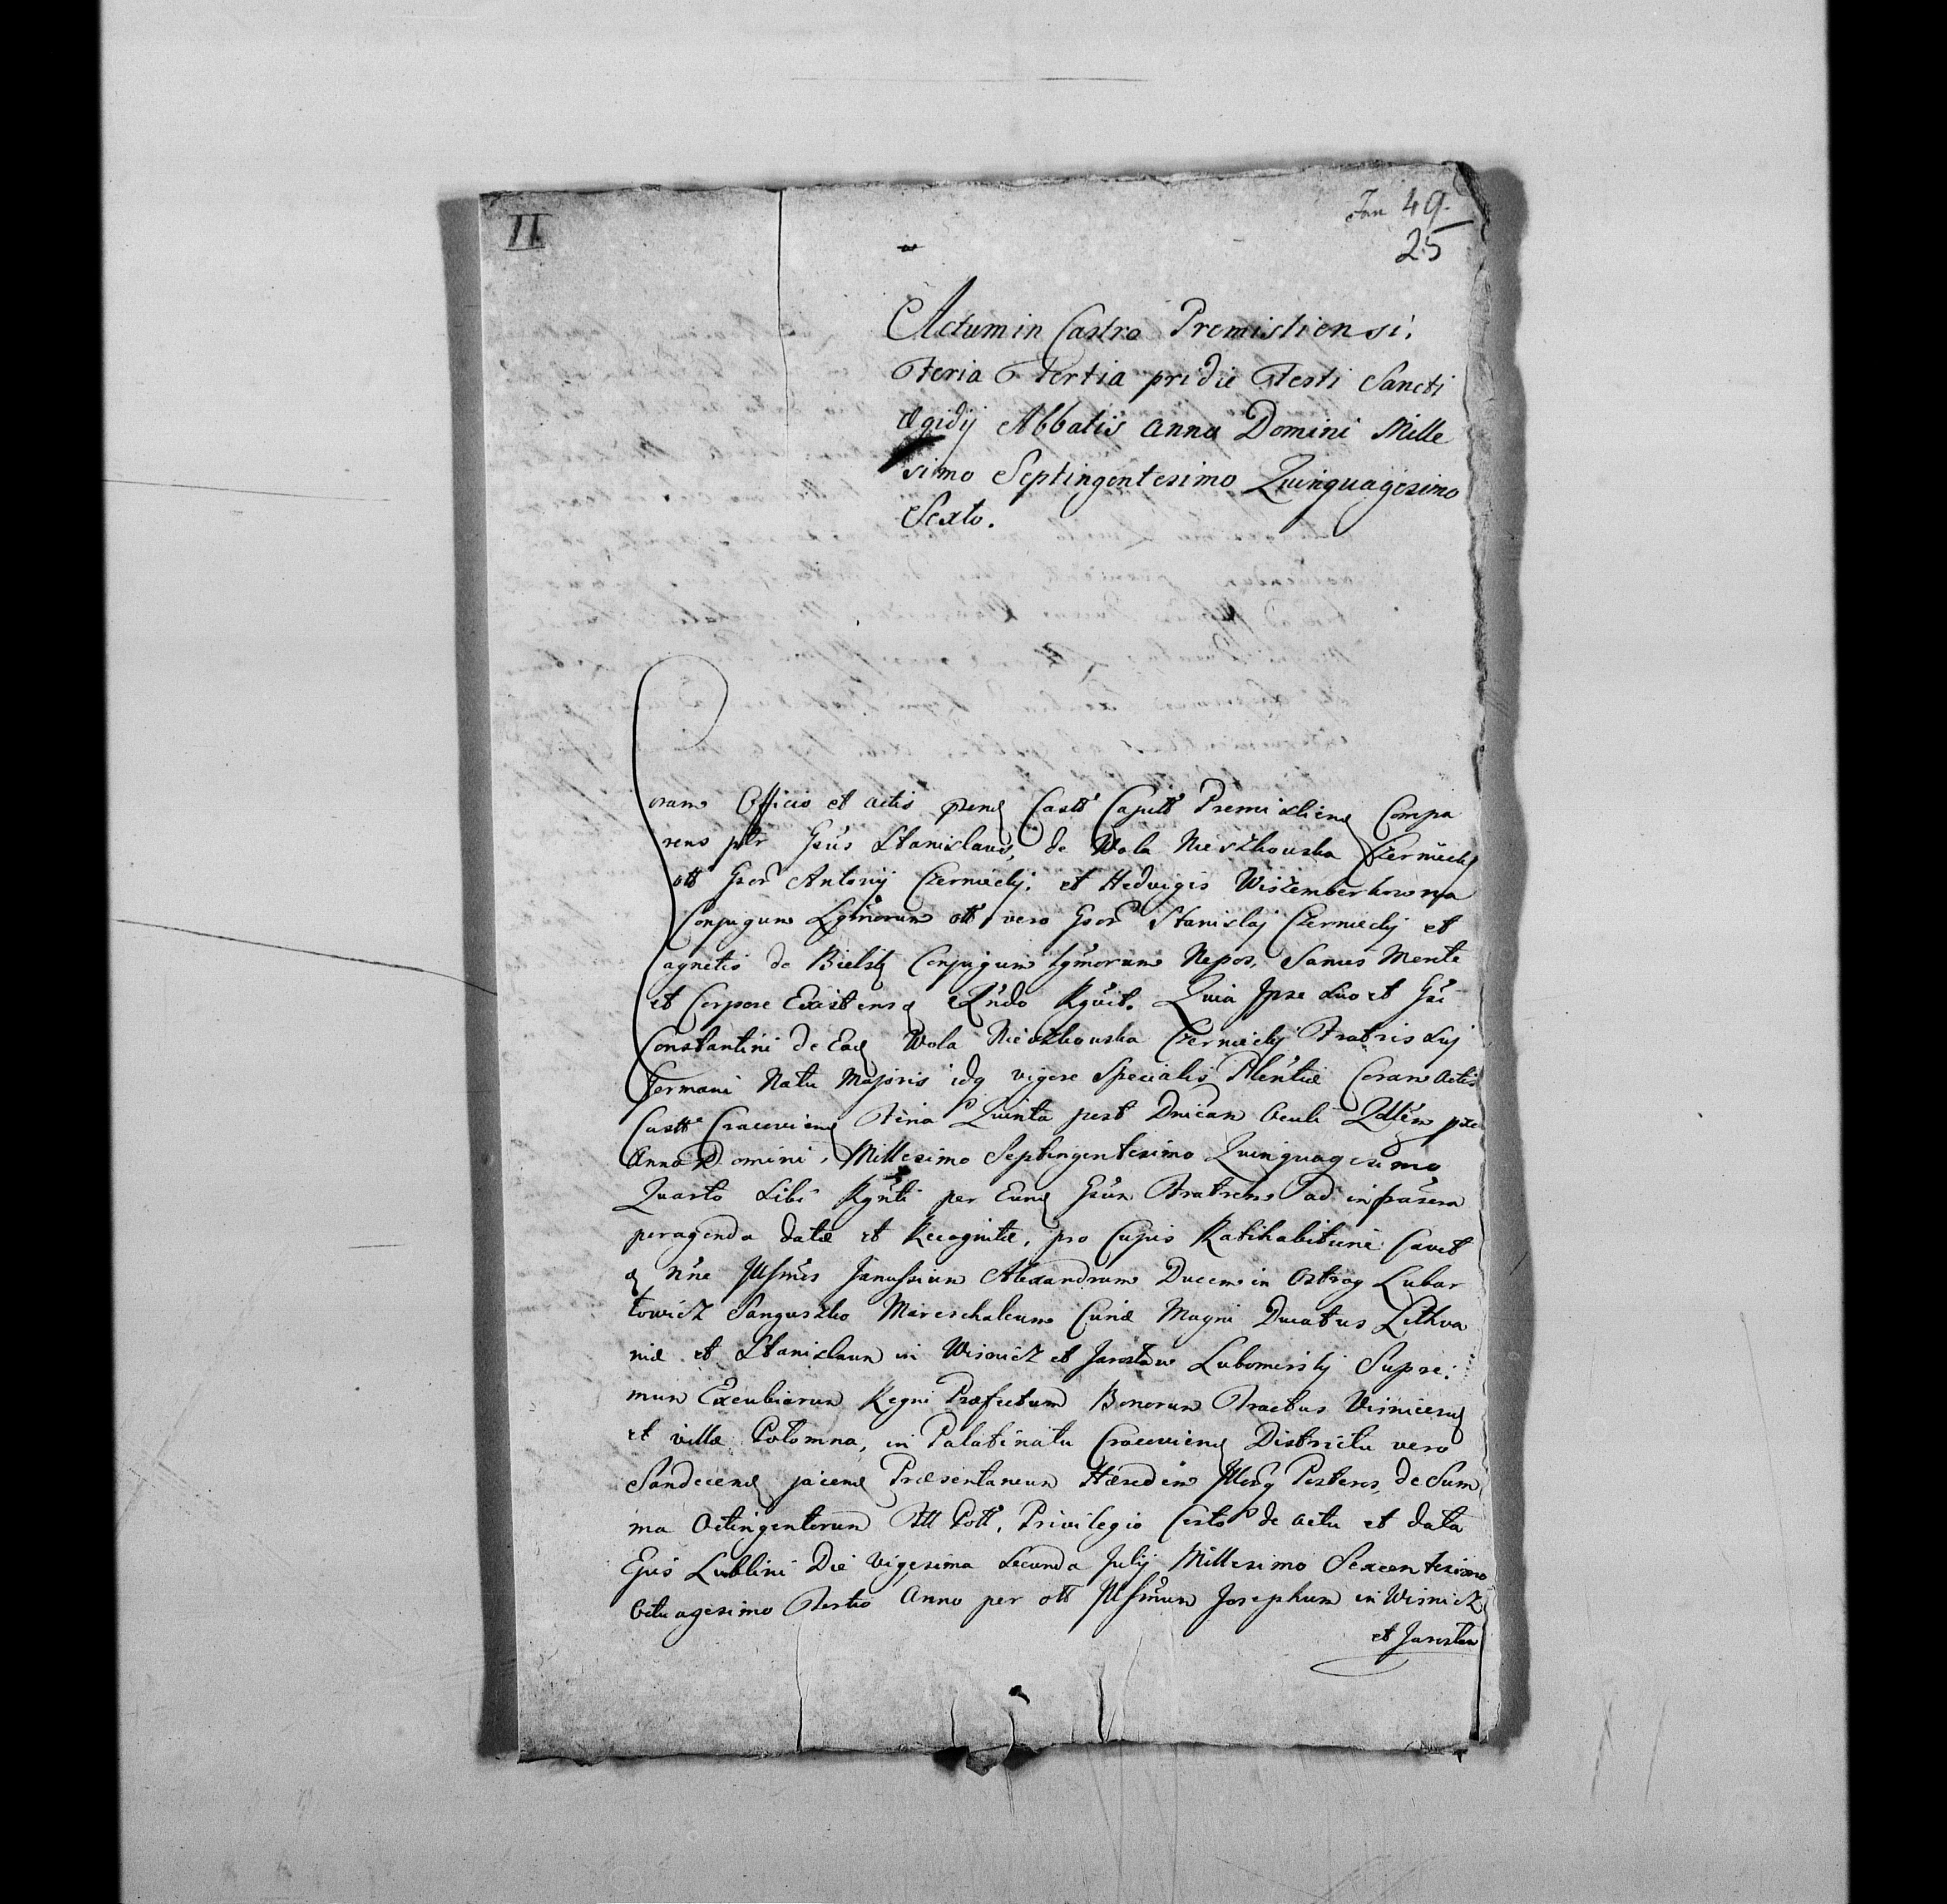 II
Fun 49.
25
Actum in Castro Premisliensi,
Feria Tertia pridie Festi Sancti
Ægidij Abbatis Anno Domini Mille
simo Septingentesimo Quinquagesimo
Sexto.
Coram Officio et actis Castr Capitt Premisliens Compa
rens Gsus Stanislaus, de Wola Nieszkowska Czerniecky
Antonij Czerniecky, et Hedvigis Wiszemberkowna
Conjugum vero Stanislaj Czerniecky et
agnetis de Bielsky Conjugum Nepos, Sanus Mente
et Corpore Existens Quia Ipse Suo et Gsi
Constantini de Wola Nieszkowska Czerniecky Fratris Suj
Germani Natu Majoris vigore Specialis Coram Actis
Castr Cracoviens Feria Quinta post Dnicam Oculi
Anno Domini, Millesimo Septingentesimo Quinquagesimo
Quarto Sibi per Gsum Fratrem ad
peragenda datæ et Recognitæ, pro Cujus Ratihabitione Cavet
Janussium Alexandrum Ducem in Ostrog Lubar
towicz Sanguszko Mareschalcum Curiæ Magni Ducatus Lithva
niæ et Stanislaum in Wisnicz et Jarosław Lubomirsky Supre:
mum Excubiarum Regni Præfectum Bonorum Tractus Visnicens
et villæ Połomna, in Palatinatu Cracoviens Districtu vero
Sandecens jacens Præsentaneum Hæredem Posteros, de Sum
ma Octingentorum Privilegio Certo de actu et data
Ejus Lublini Die Vigesima Secunda Julij Millesimo Sexcentesimo
Octuagesimo Tertio Anno per Josephum in Wisnicz
et Jarosław